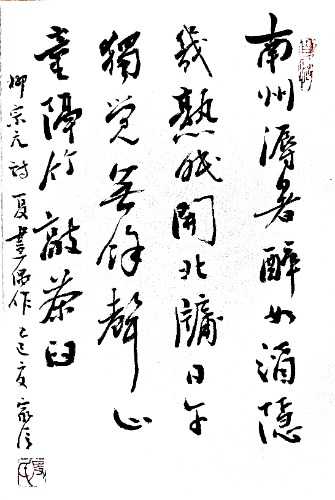 南州溽暑醉如酒隱
幾熟眠開北牖日午
獨覺無餘聲山
童隔竹敲茶臼
柳宗元詩夏晝偶作乙巳夏